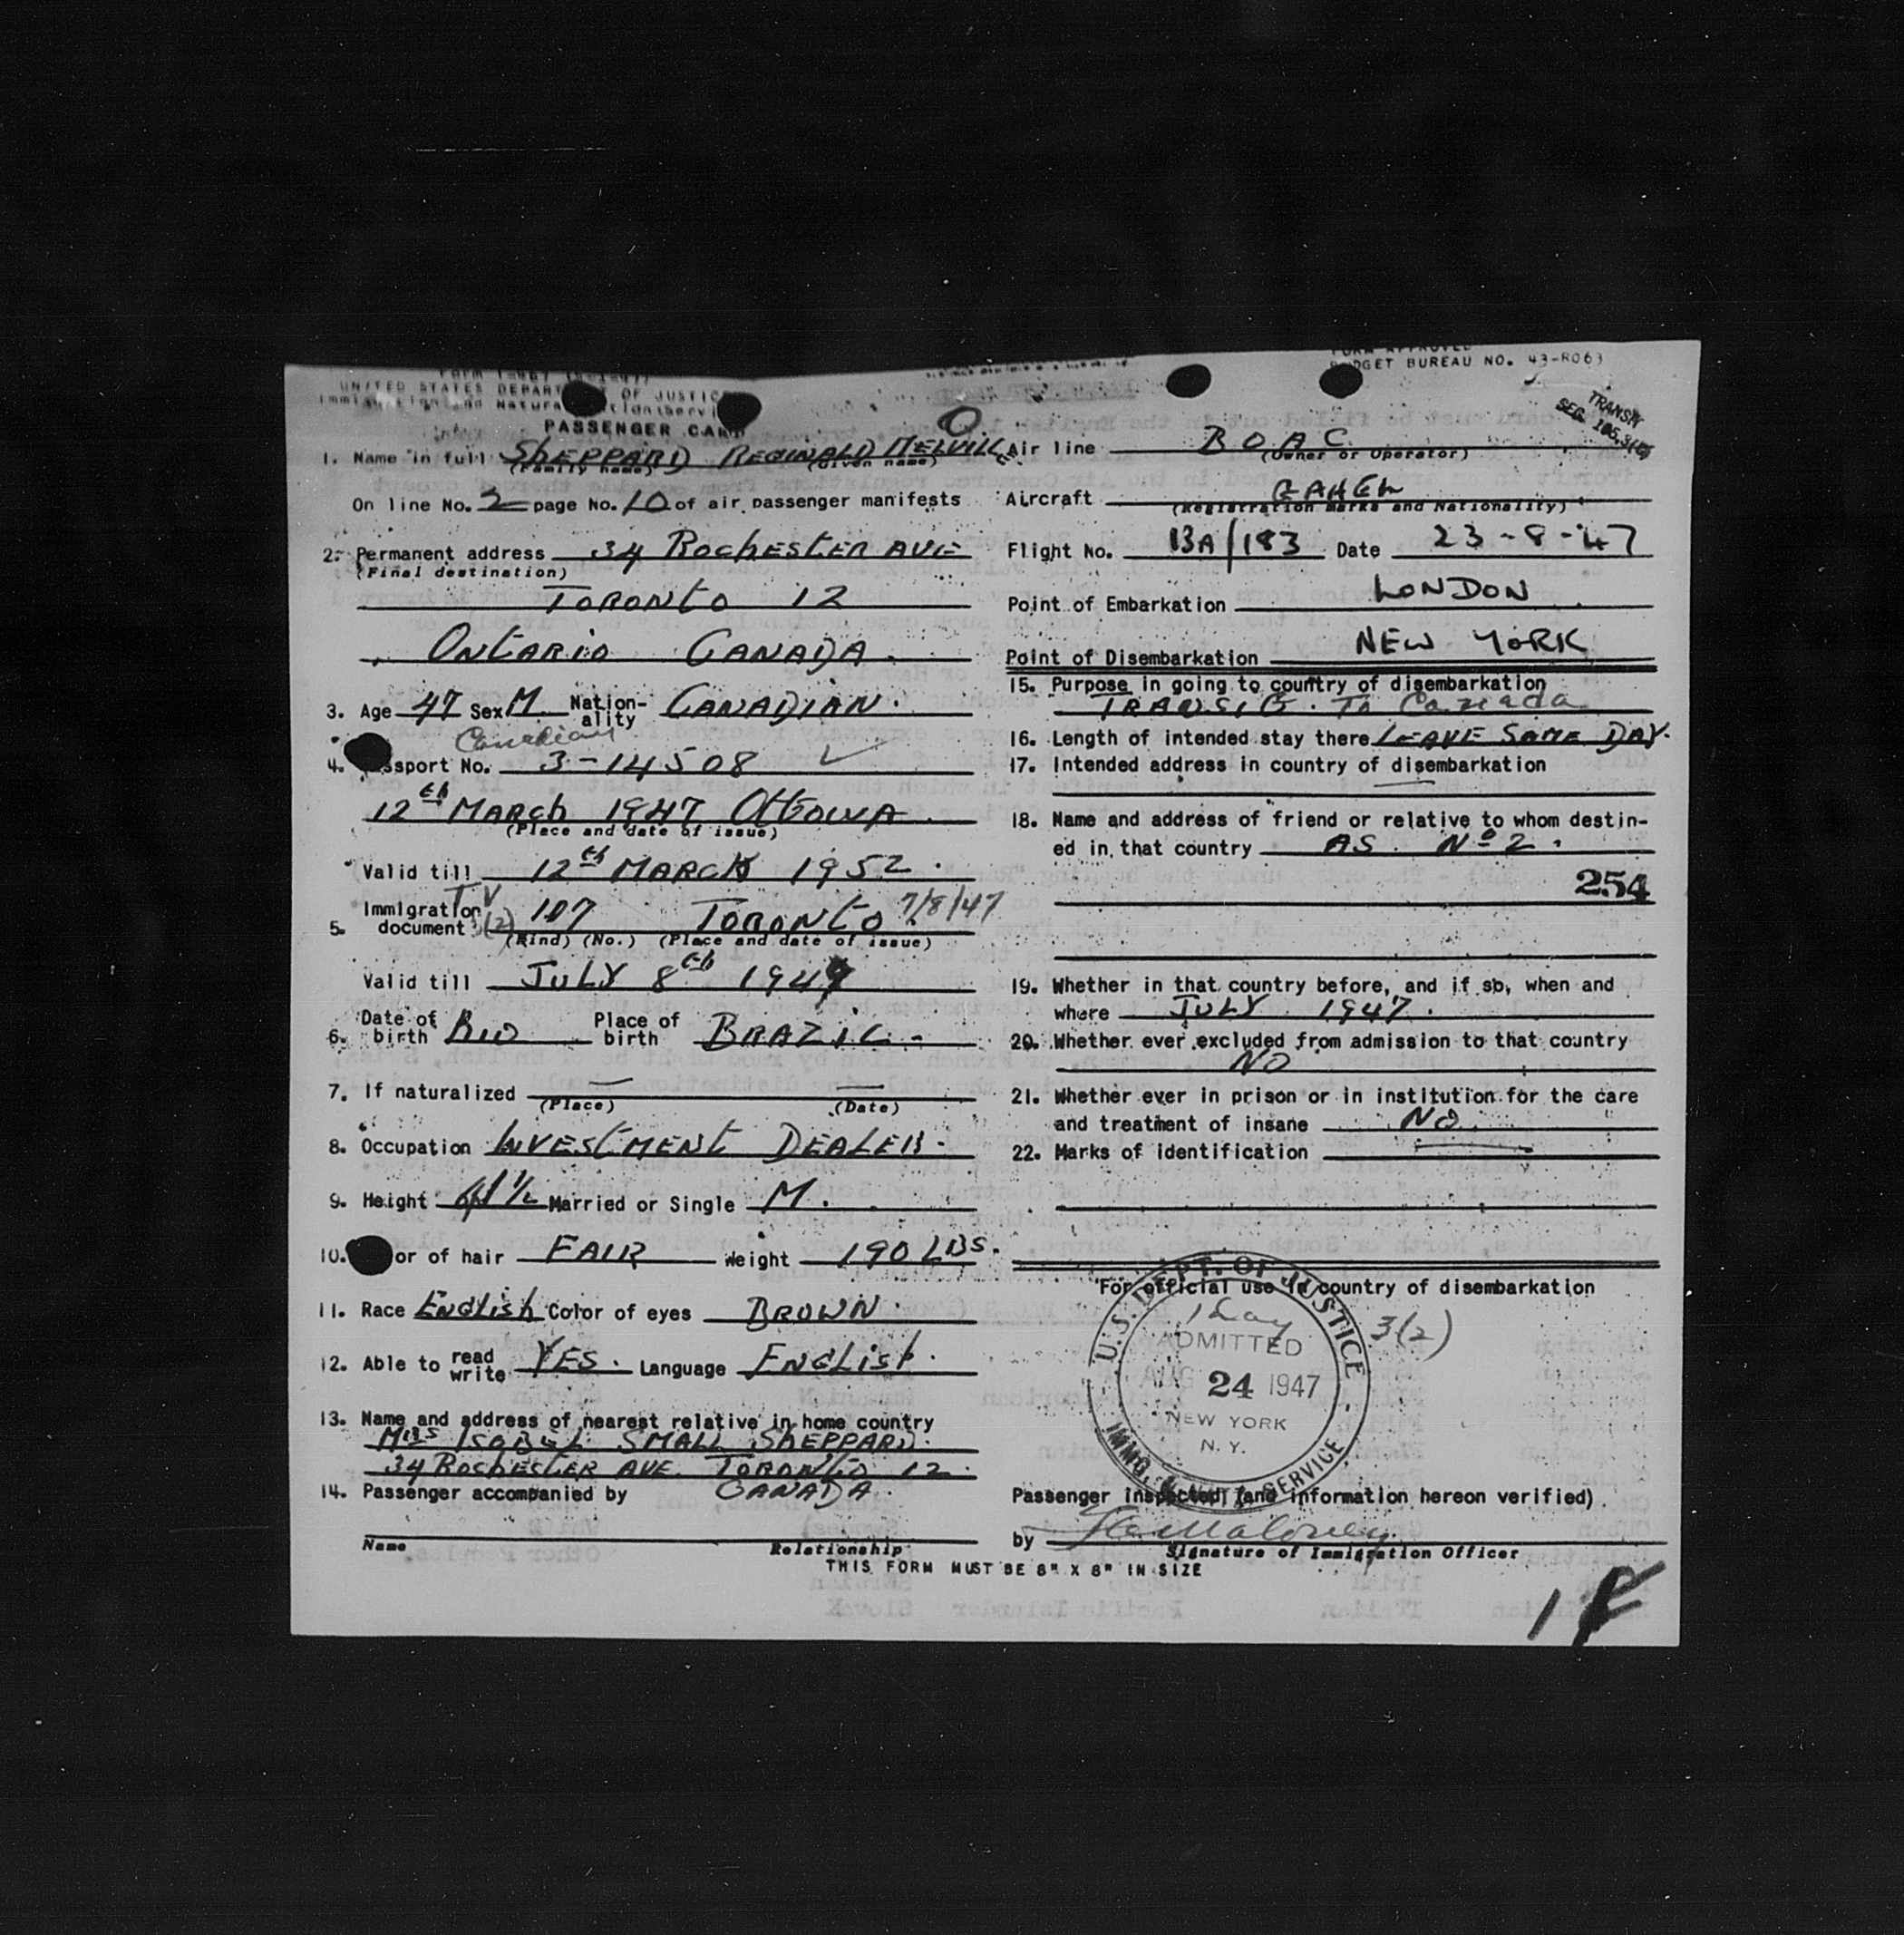 FORM APPROVED
BUDGET BUREAU NO. 43-R063
UNITED STATES DEPARTMENT OF JUSTICE
Immigration and Naturalization Service
PASSENGER CARD
TRANSIT
SEC.
O
1. Name in full SHEPPARD REGINALD MELVILLE
(Family name) (Given name)
On line No. 2 page No. 10 of air passenger manifests
2. Permanent address 34 ROCHESTER AVE
(Final destination)
TORONTO 12
ONTARIO CANADA.
3. Age 47 Sex M. Nation-ality CANADIAN.
Canadian
4. Passport No. 3-14508
12th MARCH 1947 OTTOWA.
(Place and date of issue)
Valid till 12th MARCH 1952.
TV
5. Immigration document 3(2) 107 TORONTO 7/8/47
(Kind) (No.) (Place and date of issue)
Valid till JULY 8th
6. Date of birth RIO Place of birth BRAZIL -
7. If naturalized — —
(Place) (Date)
8. Occupation INVESTMENT DEALER.
9. Height Married or Single M.
10. Color of hair FAIR Weight 190 LBS.
11. Race ENGLISH Color of eyes BROWN.
12. Able to read write YES. Language ENGLISH.
13. Name and address of nearest relative in home country
MRS ISABEL SMALL SHEPPARD.
34 ROCHESTER AVE. TORONTO 12.
14. Passenger accompanied by CANADA.
Name Relationship
Air line B O A C
(Owner or Operator)
Aircraft
(Registration marks and Nationality)
Flight No. BA/183 Date 23-8-47
Point of Embarkation LONDON
Point of Disembarkation NEW YORK
15. Purpose in going to country of disembarkation
TRANSIT. To Canada
16. Length of intended stay there LEAVE SAME DAY.
17. Intended address in country of disembarkation
—
18. Name and address of friend or relative to whom destin-
ed in that country AS No 2.
254
19. Whether in that country before, and if so, when and
where JULY 1947.
20. Whether ever excluded from admission to that country
NO
21. Whether ever in prison or in institution for the care
and treatment of insane NO.
22. Marks of identification
For official use in country of disembarkation
U.S. DEPT. OF JUSTICE
1 day
3(2)
ADMITTED
AUG 24 1947
NEW YORK
N. Y.
IMMG. & NATZ. SERVICE
Passenger inspected (and information hereon verified)
by Maloney
Signature of Immigration Officer
THIS FORM MUST BE 8" X 8" IN SIZE